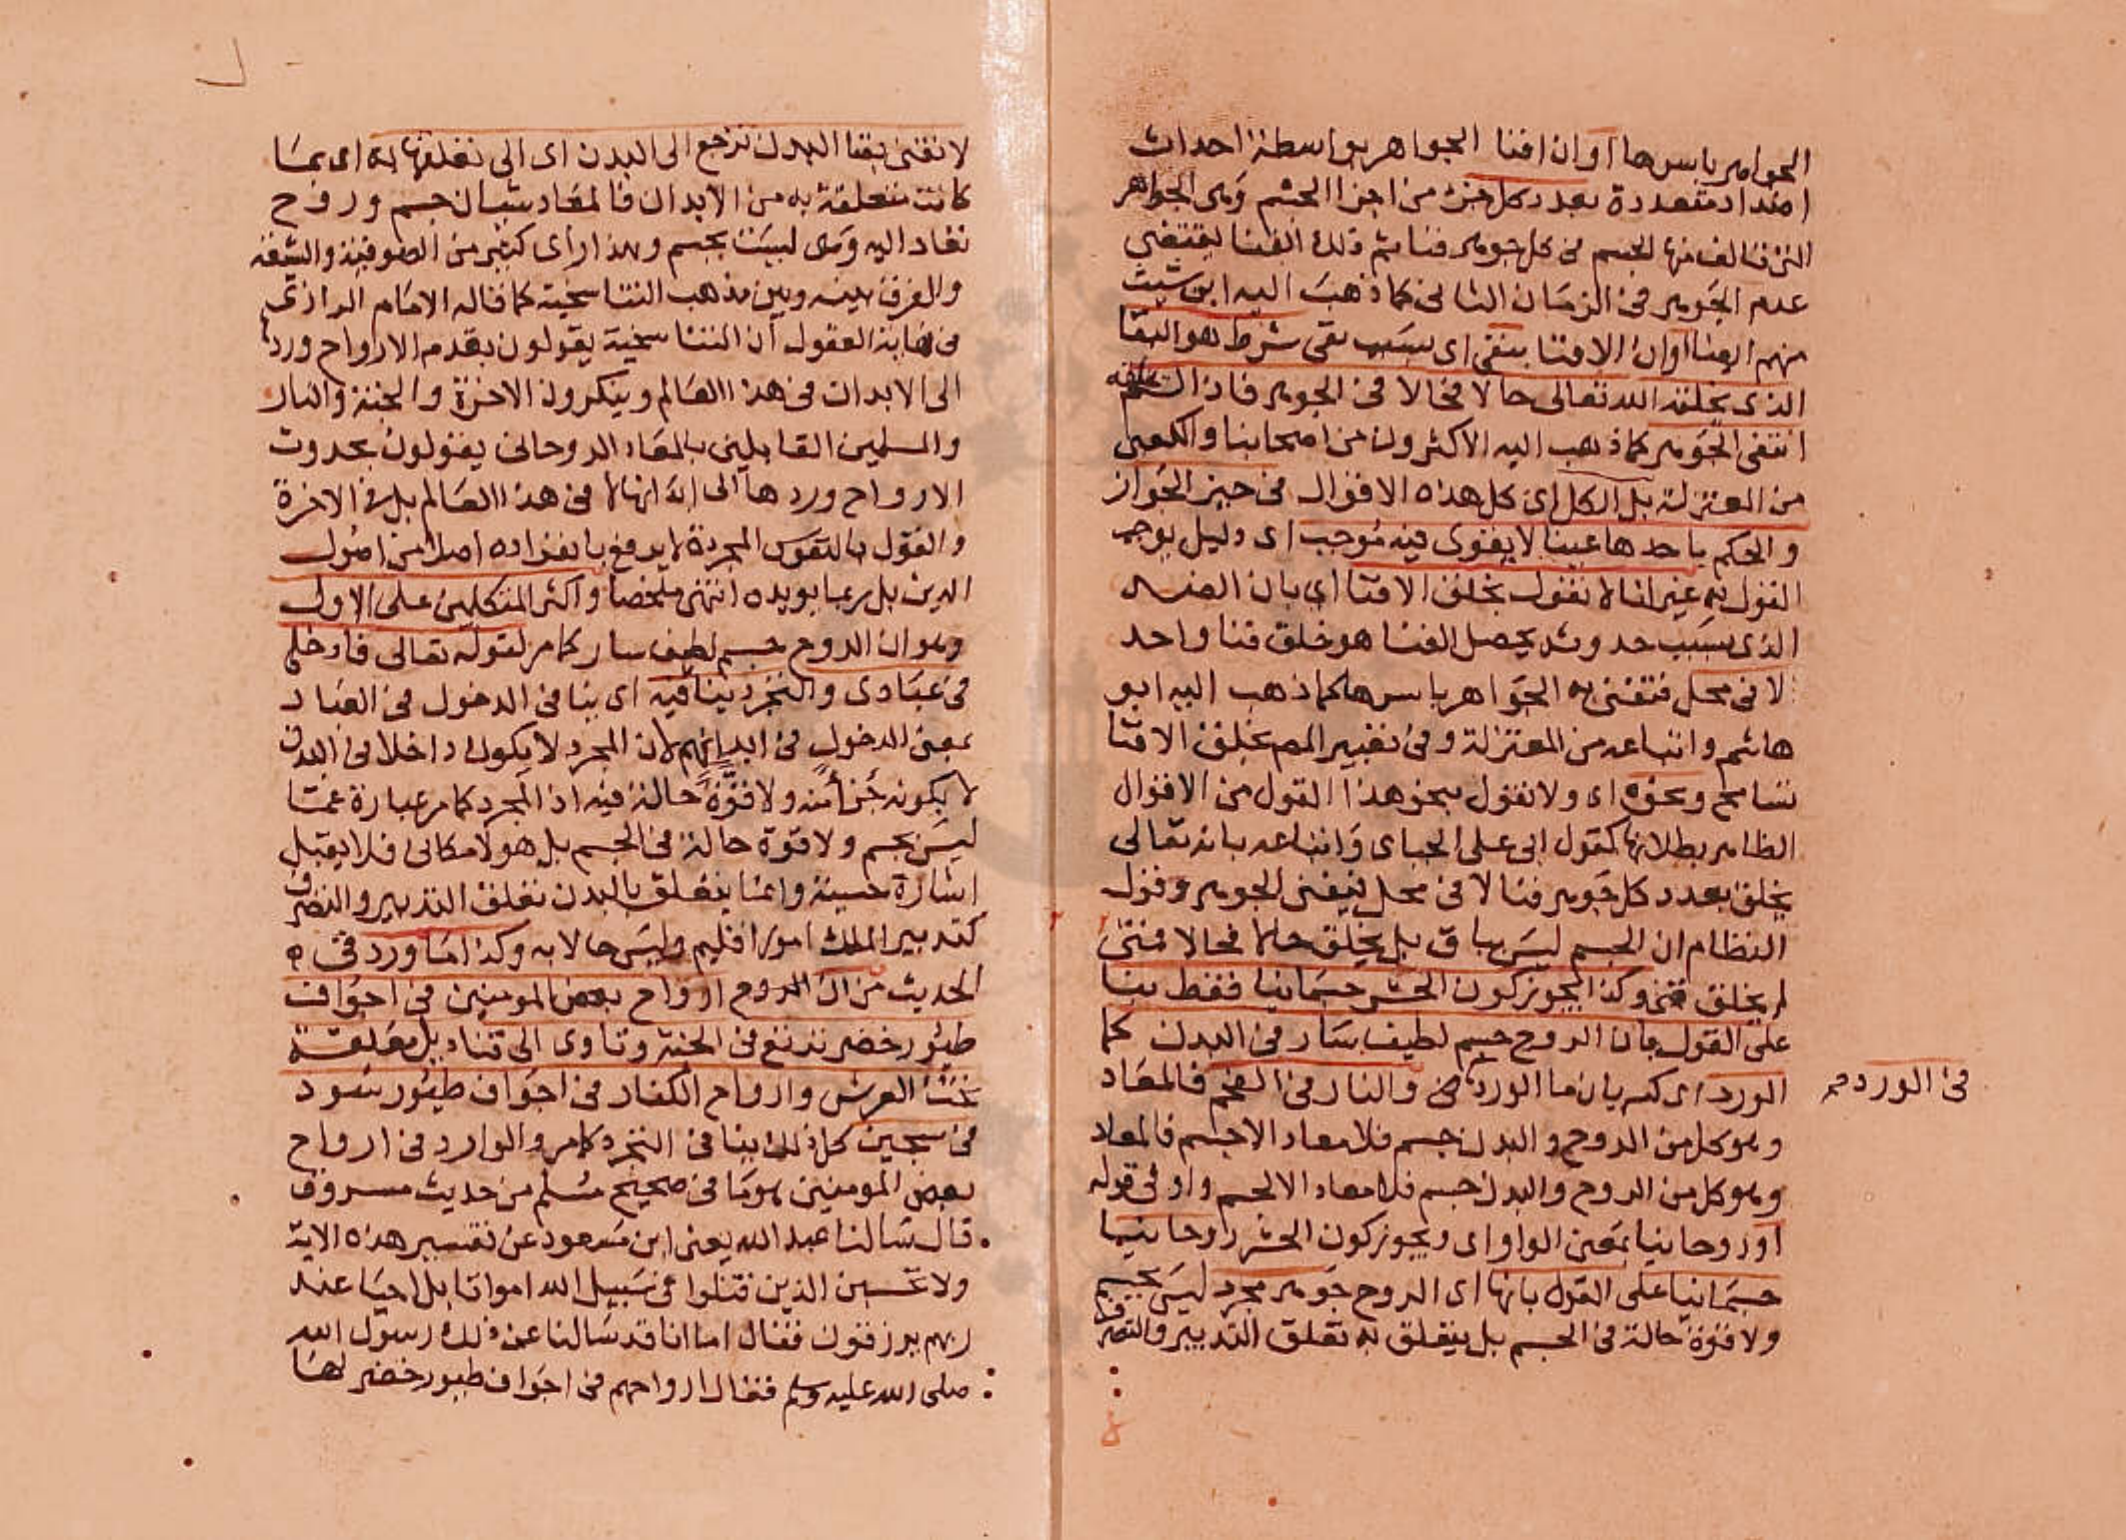 الجواهر باسرها او ان افنا الجواهر بواسطة احداث
اضداد متعددة بعدد كل جزء من اجزا الجسم وهى الجواهر
التى تالف منها الجسم فى كل جوهر فنا ثم ذلك الفنا يقتضى
عدم الجوهر فى الزمان الثانى كما ذهب اليه ابن شبيب
منهم ايضا او ان الافنا بنفى اى بسبب نفى شرط هو البقا
الذى يخلقه الله تعالى حالا فحالا فى الجوهر فاذا لم يخلقه
انتفى الجوهر كما ذهب اليه الاكثرون من اصحابنا والكعبى
من المعتزلة بل الكل اى كل هذه الاقوال فى حيز الجواز
والحكم باحدها عينا لا يقوى فيه موجب اى دليل يوجب
القول به غير انا لا نقول بخلق الافنا اى بان الضد
الذى بسبب حدوثه يحصل الفنا هو خلق فنا واحد
لا فى محل فتفنى به الجواهر باسرها كما ذهب اليه ابو
هاشم واتباعه من المعتزلة وفى تعبير المص بخلق الافنا
تسامح ونحوه اى ولا نقول بنحو هذا القول من الاقوال
الظاهر بطلانها كقول ابى على الجباى واتباعه بانه تعالى
يخلق بعدد كل جوهر فنا لا فى محل فيفنى الجوهر وقول
النظام ان الجسم ليس بباق بل يخلق حالا فحالا فمتى
لم يخلق فنى وكذا يجوز كون الحشر جسمانيا فقط بنا
على القول بان الروح جسم لطيف سار فى البدن كما
الورد اى كسريان ما الورد فى والنار فى الفحم فالمعاد
فى الورد صح
وهو كل من الروح والبدن جسم فلا معاد الا جسم فالمعاد
وهو كل من الروح والبدن جسم فلا معاد الا لجسم واو فى قوله
او روحانيا بمعنى الواو اى ويجوز كون الحشر روحانيا
جسمانيا على القول بانها اى الروح جوهر مجرد ليس بجسم
ولا قوة حالة فى الجسم بل يتعلق به تعلق التدبير والتصرف
لا تفنى بفنا البدن ترجع الى البدن اى الى تعلقها به اى بما
كانت متعلقة به من الابدان فالمعاد شيان جسم وروح
تعاد اليه وهى ليست بجسم وهذا راى كثير من الصوفية والشيعة
والفرق بينه وبين مذهب التناسخية كما قاله الامام الرازى
فى نهاية العقول ان التناسخية يقولون بقدم الارواح وردها
الى الابدان فى هذا العالم وينكرون الاخرة والجنة والنار
والمسلمين القايلين بالمعاد الروحانى يقولون بحدوث
الارواح وردها الى ابدانها لا فى هذا العالم بل فى الاخرة
والقول بالنفوس المجردة لا يرفع بانفراده اصلا من اصول
الدين بل ربما يويده انتهى ملخصا واكثر المتكلمين على الاول
وهو ان الروح جسم لطيف سار كما مر لقوله تعالى فادخلى
فى عبادى والتجرد ينافيه اى ينافى الدخول فى العباد
بمعنى الدخول فى ابدانهم لان المجرد لا يكون داخلا فى البدن
لا بكونه جزأ منه ولا قوة حالة فيه اذ المجرد كما مر عبارة عما
ليس بجسم ولا قوة حالة فى الجسم بل هو لا مكانى فلا يقبل
اشارة حسية وانما يتعلق بالبدن تعلق التدبير والتصرف
كتدبير الملك امور اقليم وليس حالا به وكذا ما ورد فى
الحديث من ان الروح ارواح بعض المومنين فى اجواف
طيور خضر ترتع فى الجنة وتاوى الى قناديل معلقة
تحت العرش وارواح الكفار فى اجواف طيور سود
فى سجين كل ذلك ينافى التجرد كما مر والوارد فى ارواح
بعض المومنين هو ما فى صحيح مسلم من حديث مسروق
قال سالنا عبد الله يعنى ابن مسعود عن تفسير هذه الاية
ولا تحسبن الذين قتلوا فى سبيل الله امواتا بل احيا عند
ربهم يرزقون فقال اما انا قد سالنا عن ذلك رسول الله
صلى الله عليه وسلم فقال ارواحهم فى اجواف طيور خضر لها